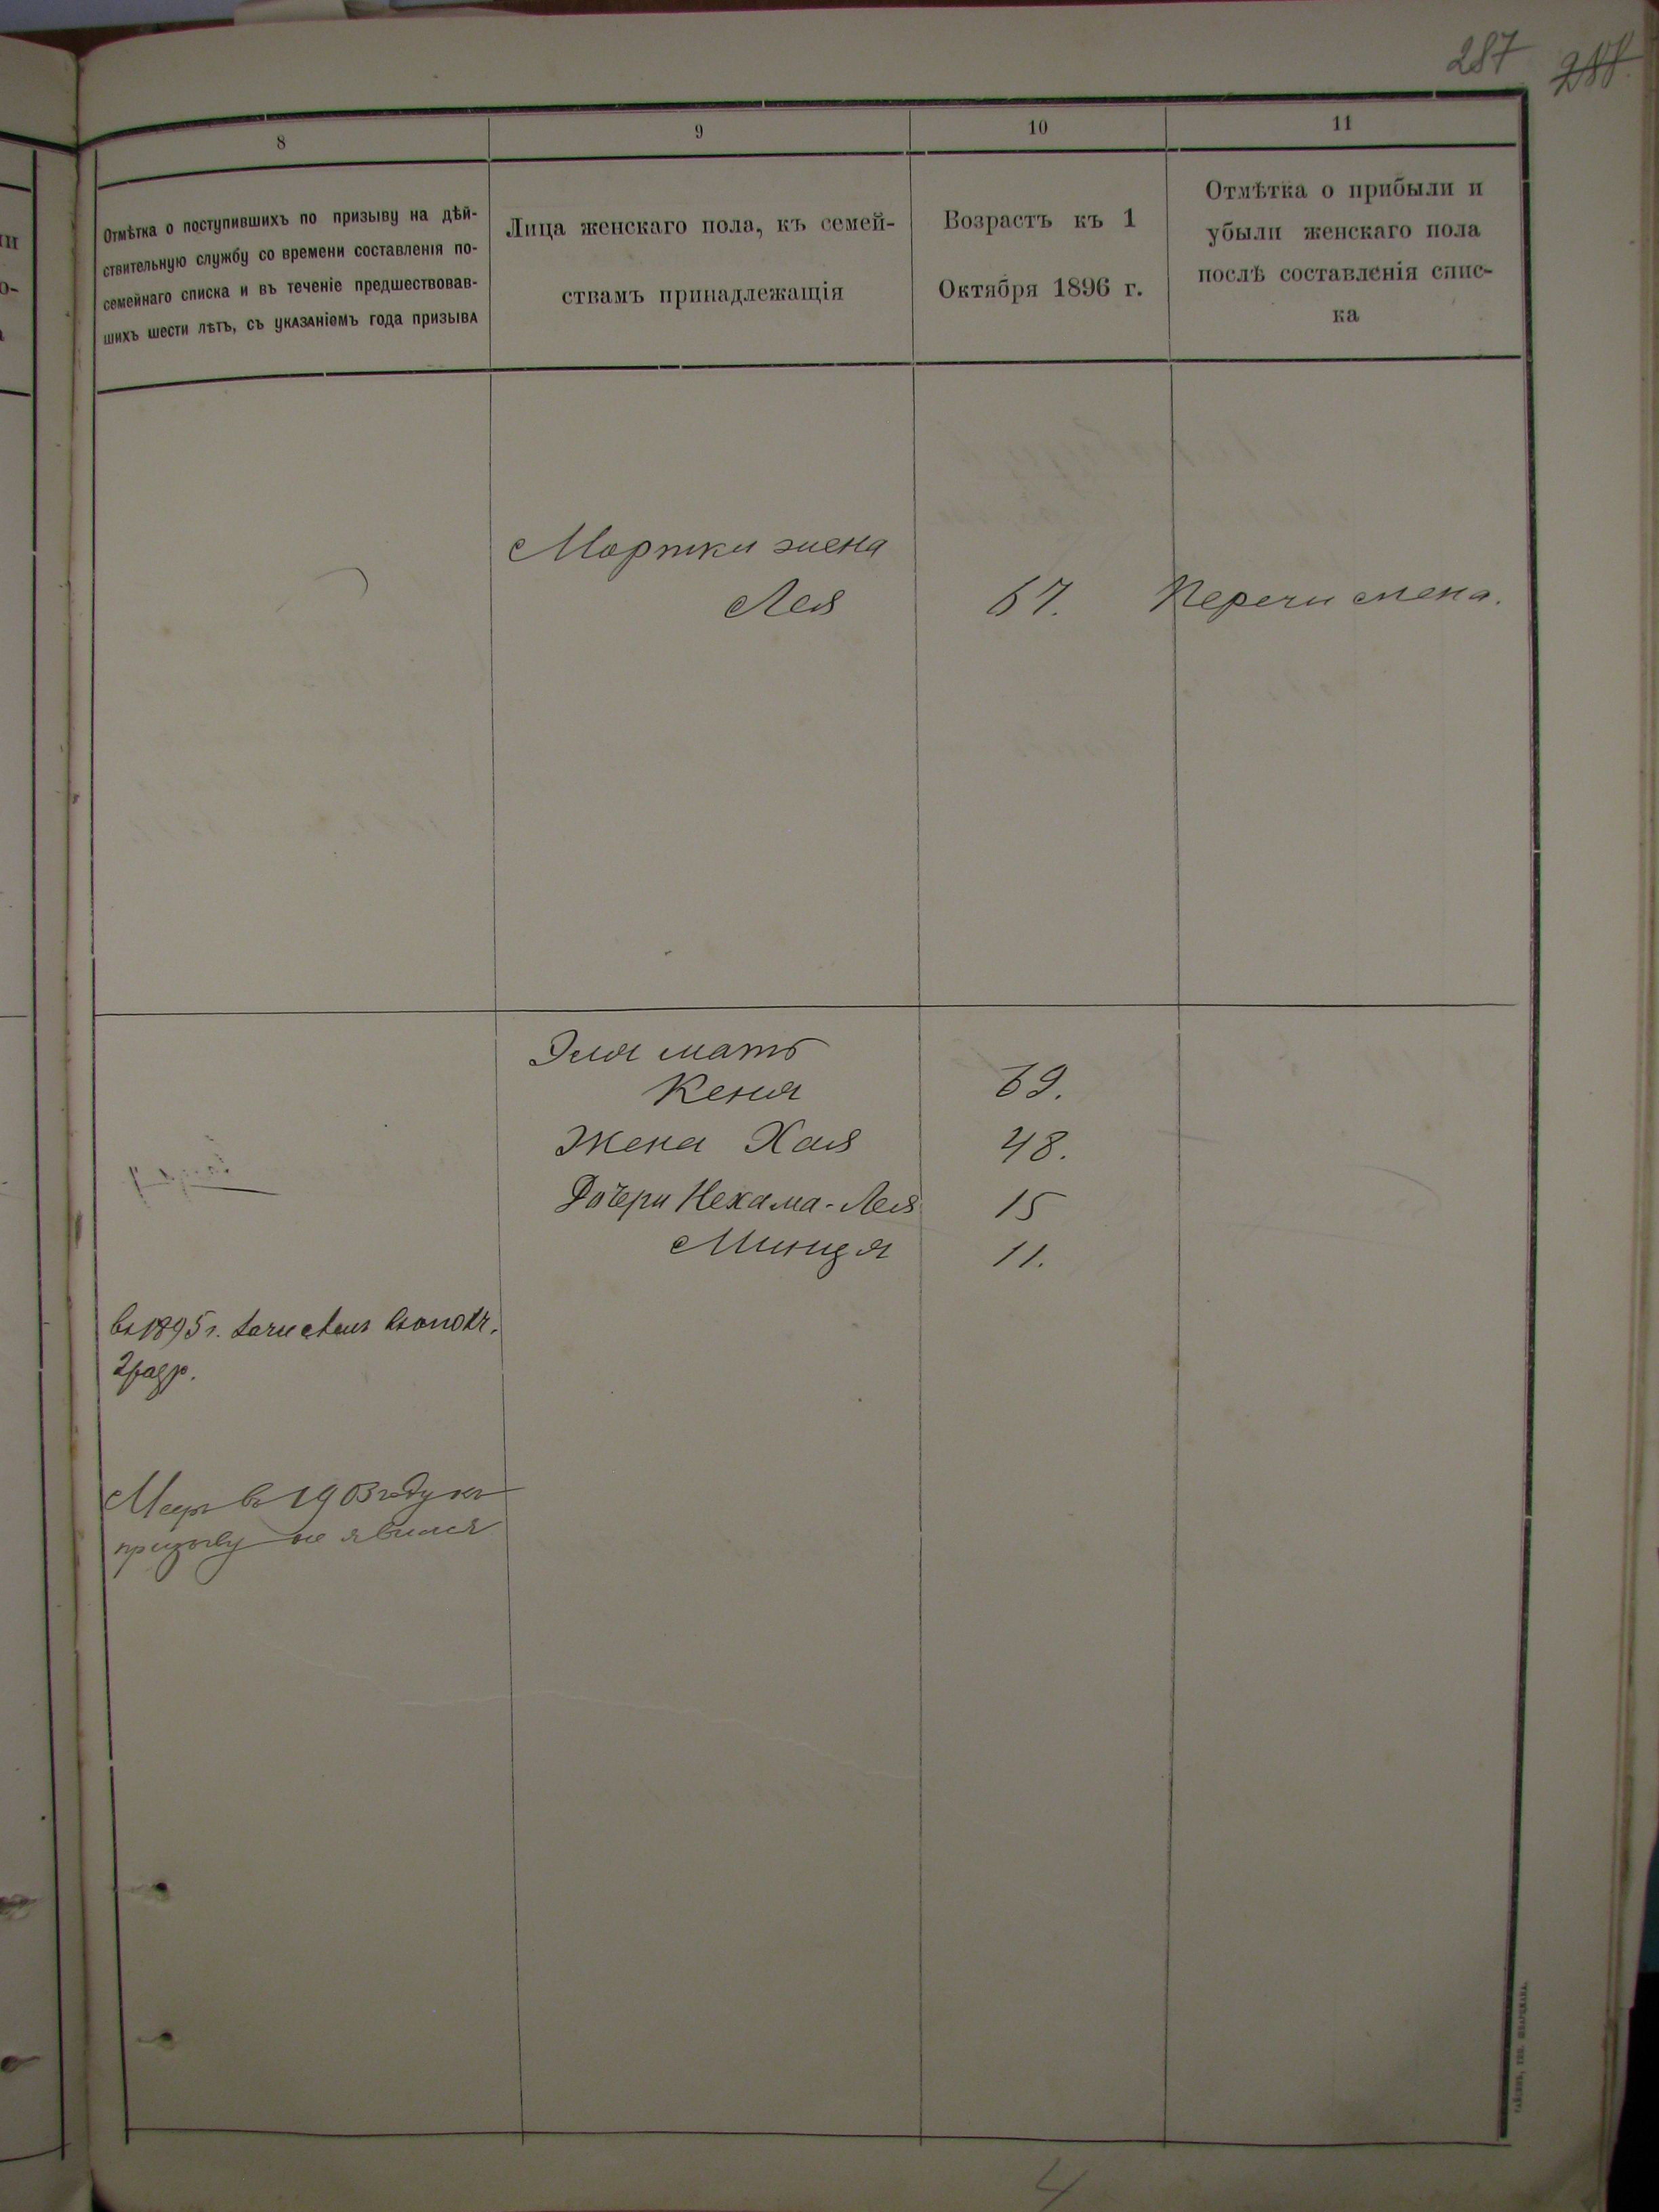 287 288.
8
9
10
11
Отмѣтка о поступившихъ по призыву на дѣй-
ствительную службу со времени составленія по-
семейнаго списка и въ теченіе предшествовав-
шихъ шести лѣтъ, съ указаніемъ года призыва
Лица женскаго пола, къ семей-
ствамъ принадлежащія
Возрастъ къ 1
Октября 1896 г.
Отмѣтка о прибыли и
убыли женскаго пола
послѣ составленія спис-
ка
Мортки жена
Лея
67.
Перечислена.
Эля мать
Кеня
69.
Жена Хая
48.
Дочери Нехама-Лея
15
Минця
11.
въ 1895 г. зачисленъ
2 разр.
въ 1903 году къ
призыву не явился
4